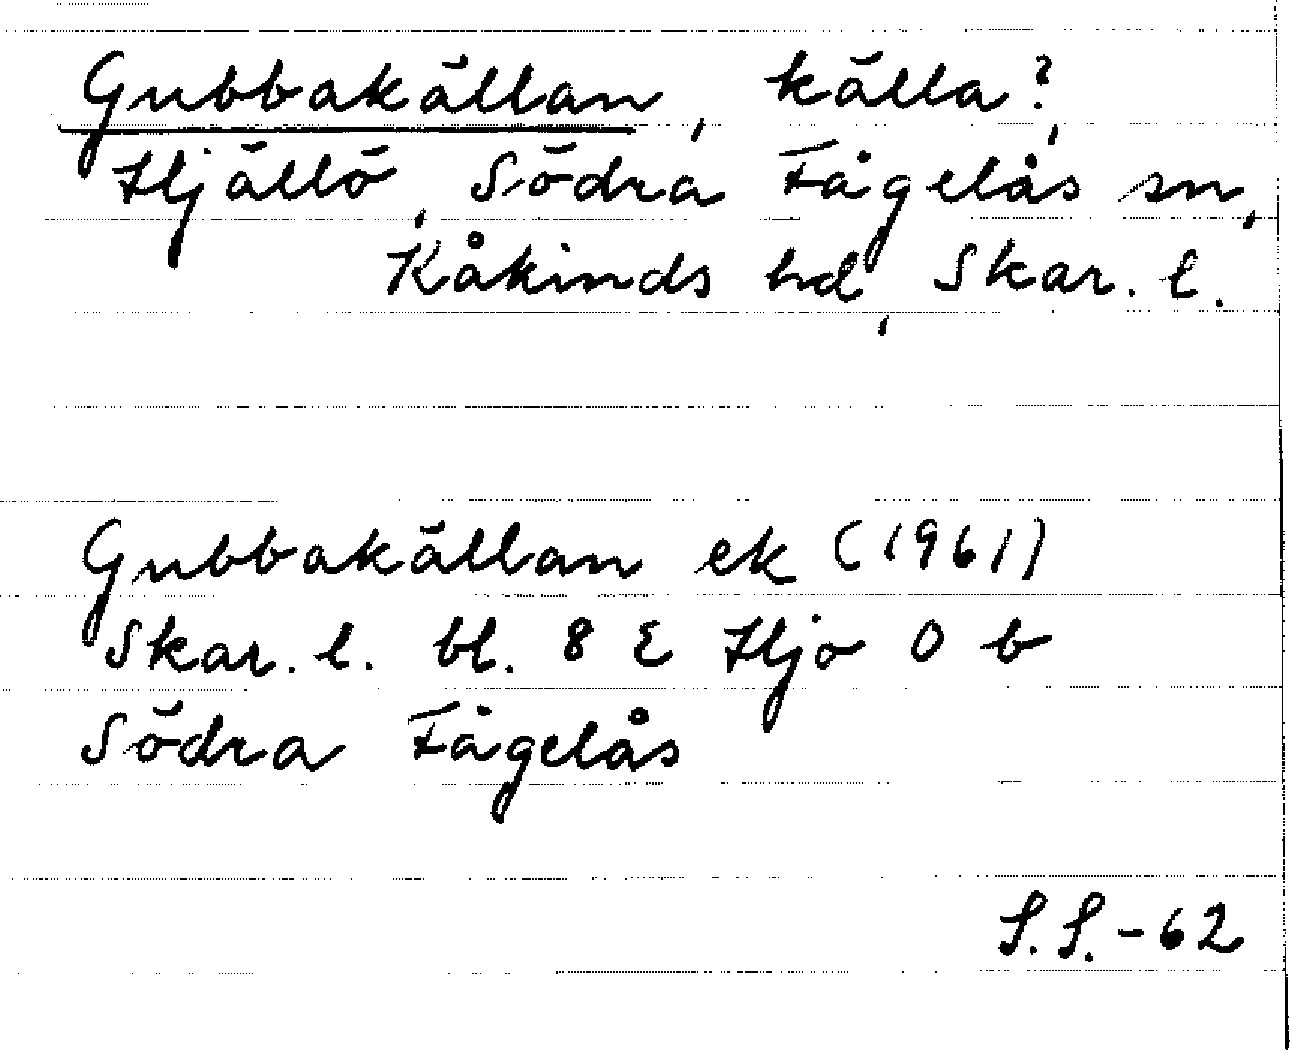 Gubbakällan, källa?,
Hjällö, Södra Fågelås sn,
Kåkinds hd, Skar. l.
Gubbakällan ek (1961)
Skar. l. bl. 8 E Hjo 0 b
Södra Fågelås
S.S.-62